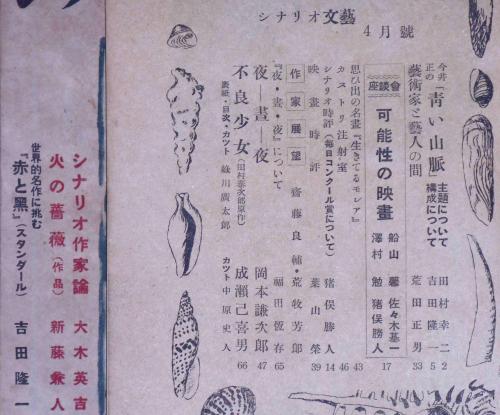 シナリオ文藝
4月號
今井正の「靑い山脈」主題について 田村幸二 2
構成について 吉田隆一 5
藝術家と藝人の間 荒田正男 33
座談會 可能性の映畫 船山馨 佐々木基一 澤村勉 猪俣勝人 17
思ひ出の名畫『生きてるモレア』 43
カストリ注射室 46
シナリオ時評(每日コンクール賞について) 猪俣勝人 14
映畫時評 葉山榮 39
作家展望 齋藤良輔・荒牧芳郎
『夜・晝・夜』について 福田恆存 65
夜―晝―夜 岡本謙次郎 47
不良少女(田村泰次郎原作) 成瀨己喜男 66
表紙・目次・カツト 綠川廣太郎 カツト 中原史人
シナリオ作家論 大木英吉
火の薔薇(作品) 新藤兼人
世界的名作に挑む
『赤と黑』(スタンダール) 吉田隆一